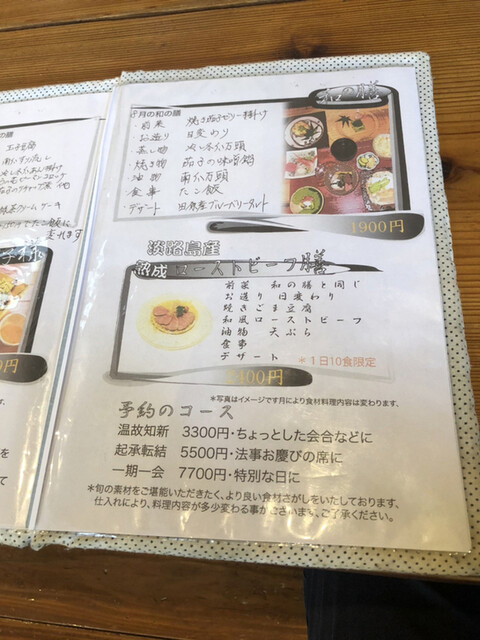 玉子豆腐
茶クリームケーキ
たこ飯に
変えれます
0円
和の膳
月の和の膳
・前菜 焼き茄子ゼリー掛け
・お造り 日変わり
・蒸し物 冷し冬瓜万頭
・焼き物 茄子の味噌餡
・油物 南瓜万頭
・食事 たこ飯
・デザート 田原産ブルーベリータルト
1900円
淡路島産
熟成ローストビーフ膳
前菜 和の膳と同じ
お造り 日変わり
焼きごま豆腐
和風ローストビーフ
油物 天ぷら
食事
デザート ※1日10食限定
2300円
*写真はイメージです月により食材料理内容は変わります。
予約のコース
温故知新 3300円・ちょっとした会合などに
起承転結 5500円・法事お慶びの席に
一期一会 7700円・特別な日に
*旬の素材をご堪能いただきたく、より良い食材さがしをいたしております、
仕入れにより、料理内容が多少変わる事がございます、ご了承ください。